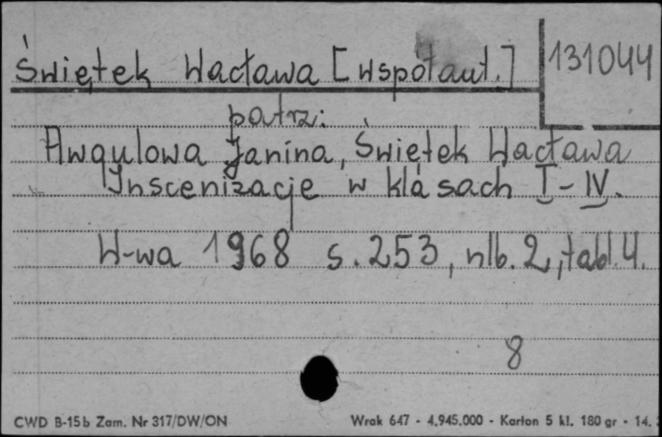 Świętek Wacława [współaut.] 131044
patrz:
Awgulowa Janina, Świętek Wacława
Inscenizacje w klasach I-IV.
W-wa 1968 s. 253, nlb. 2, tabl. 4.
8
CWD B-15b Zam. Nr 317/DW/ON Wrak 647 - 4.945.000 - Karton 5 kl. 180 gr - 14.